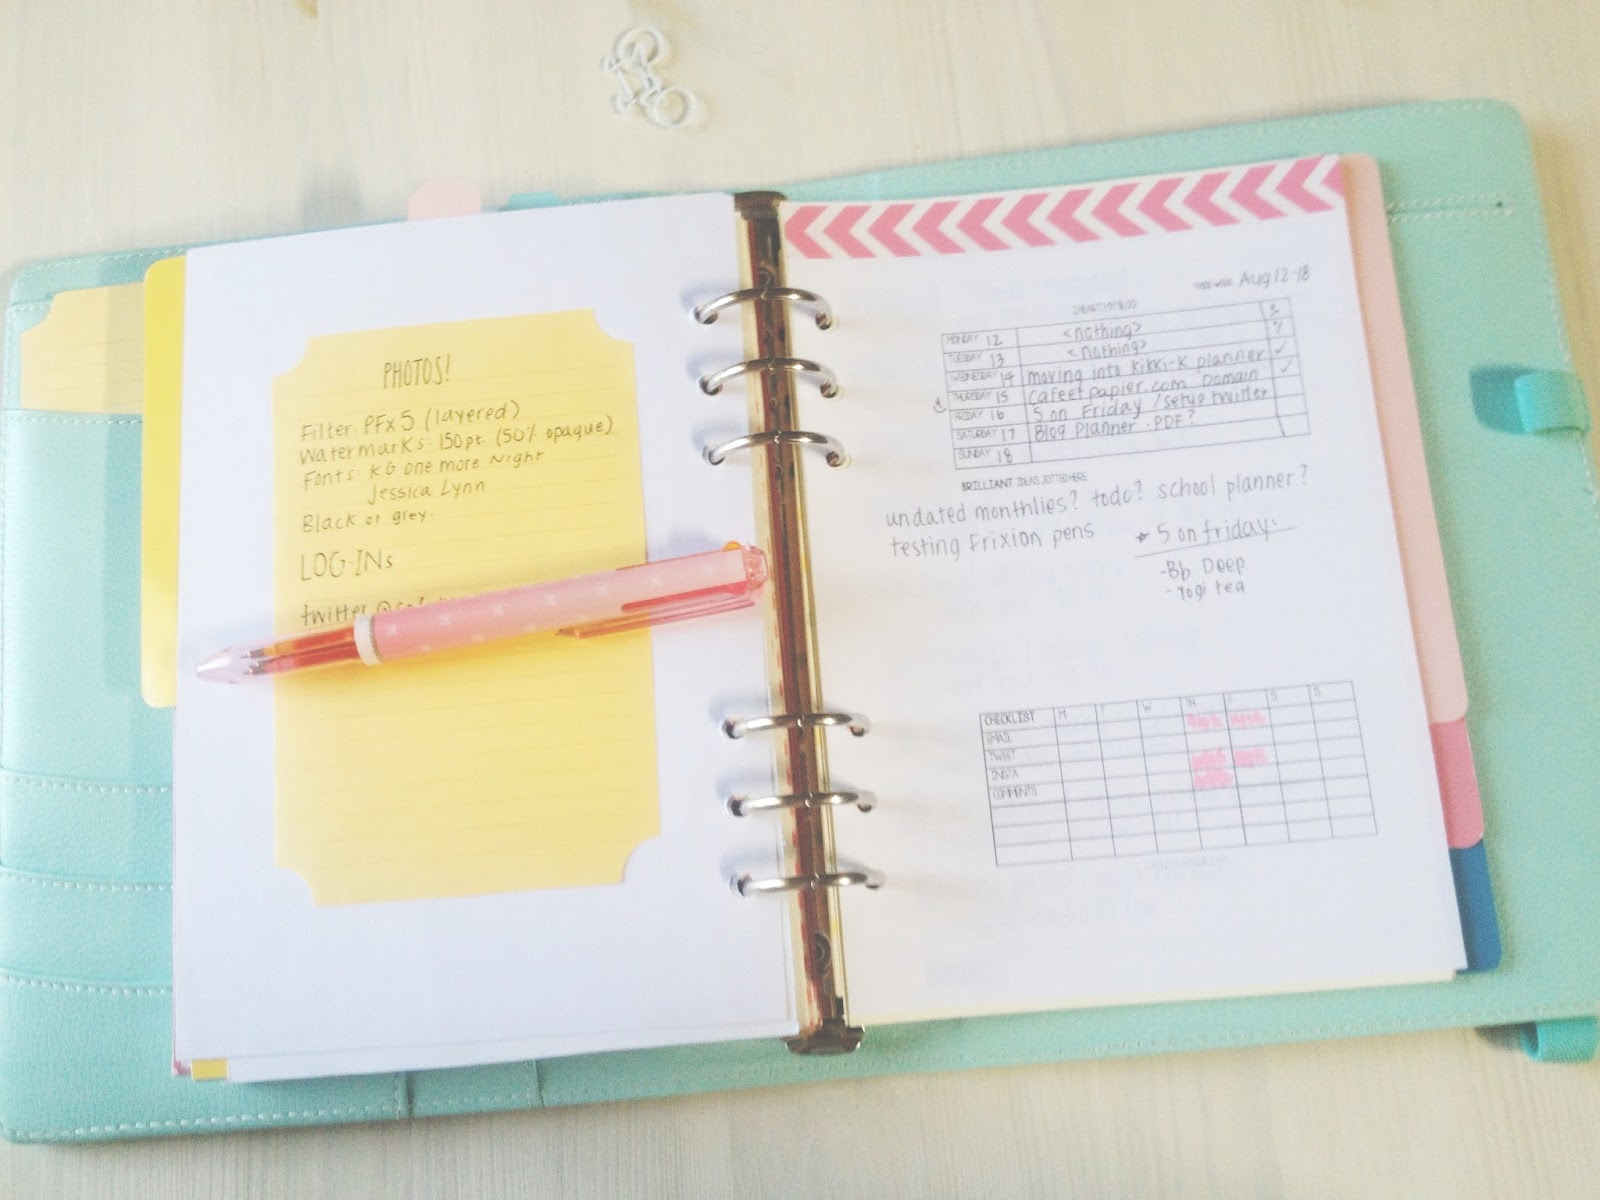 PHOTOS!
Filter: PFx 5 (layered)
Watermarks: 150pt. (50% opaque)
Fonts: KG one more Night
Jessica Lynn
Black or grey.
LOG-INs
twitter @
THIS WEEK Aug 12-18
I HEART MY BLOG
MONDAY 12 <nothing>
TUESDAY 13 <nothing>
WEDNESDAY 14 moving into Kikki-K planner ✓
THURSDAY 15 cafeetpapier.com Domain ✓
FRIDAY 16 5 on Friday / setup twitter
SATURDAY 17 Blog Planner PDF?
SUNDAY 18
BRILLIANT IDEAS JOTTED HERE
undated monthlies? todo? school planner?
testing Frixion pens
* 5 on friday:
- Bb Deep
- Yogi tea
CHECKLIST M T W TH F S S
EMAIL
TWEET
INSTA
COMMENTS